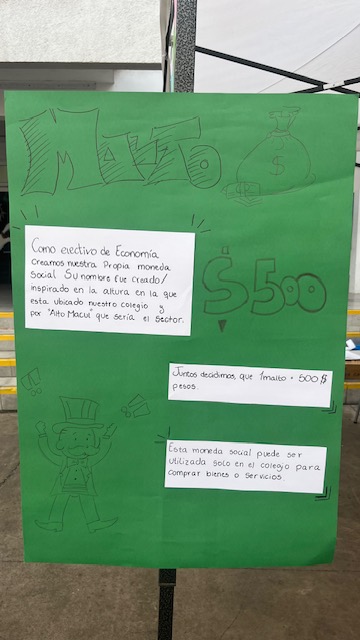 MALTO
$
Como electivo de Economía
creamos nuestra Propia moneda
social Su nombre fue creado/
inspirado en la altura en la que
esta ubicado nuestro colegio y
por "Alto Macul" que sería el sector.
$500
Juntos decidimos, que 1malto = 500$
pesos.
Esta moneda social puede ser
utilizada solo en el colegio para
comprar bienes o servicios.